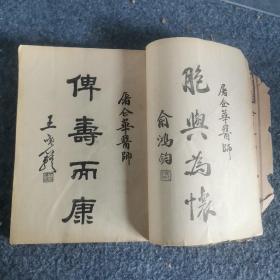 屠企華醫師
胞與為懷
俞鴻鈞
屠企華醫師
俾壽而康
王